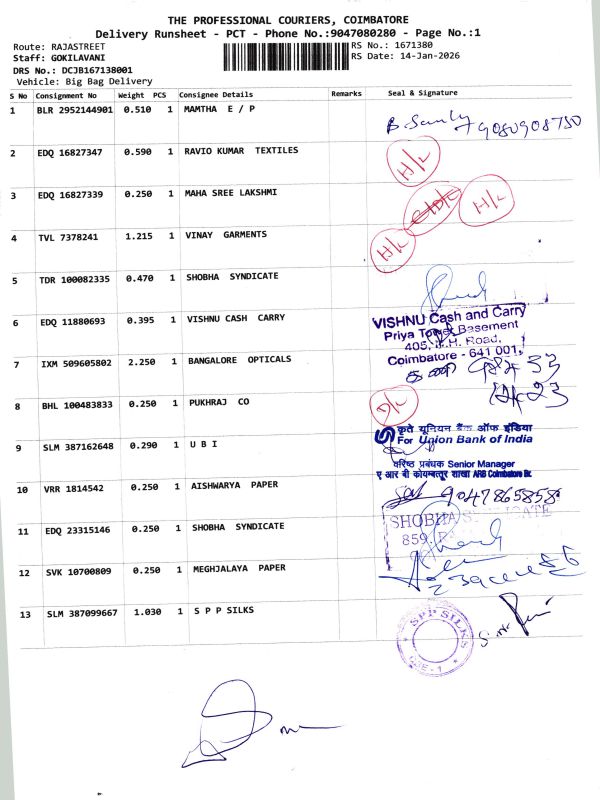 THE PROFESSIONAL COURIERS, COIMBATORE
Delivery Runsheet - PCT - Phone No.:9047080280 - Page No.:1
Route: RAJASTREET
RS No.: 1671380
Staff: GOKILAVANI
RS Date: 14-Jan-2026
DRS No.: DCJB167138001
Vehicle: Big Bag Delivery
S No Consignment No Weight PCS Consignee Details Remarks Seal & Signature
1 BLR 2952144901 0.510 1 MAMTHA E / P
2 EDQ 16827347 0.590 1 RAVIO KUMAR TEXTILES H/L
3 EDQ 16827339 0.250 1 MAHA SREE LAKSHMI H/L
4 TVL 7378241 1.215 1 VINAY GARMENTS H/L
5 TDR 100082335 0.470 1 SHOBHA SYNDICATE
6 EDQ 11880693 0.395 1 VISHNU CASH CARRY
VISHNU Cash and Carry
Priya Tower Basement
405, H.H. Road,
Coimbatore - 641 001.
7 IXM 509605802 2.250 1 BANGALORE OPTICALS
8 BHL 100483833 0.250 1 PUKHRAJ CO D/L
9 SLM 387162648 0.290 1 U B I
कृते यूनियन बैंक ऑफ इंडिया
For Union Bank of India
वरिष्ठ प्रबंधक Senior Manager
ए आर बी कोयम्बत्तूर शाखा ARB Coimbatore Br.
10 VRR 1814542 0.250 1 AISHWARYA PAPER 9047865858
11 EDQ 23315146 0.250 1 SHOBHA SYNDICATE
SHOBHA SYNDICATE
859,
12 SVK 10700809 0.250 1 MEGHJALAYA PAPER
13 SLM 387099667 1.030 1 S P P SILKS
SPP SILKS
CBE - 1